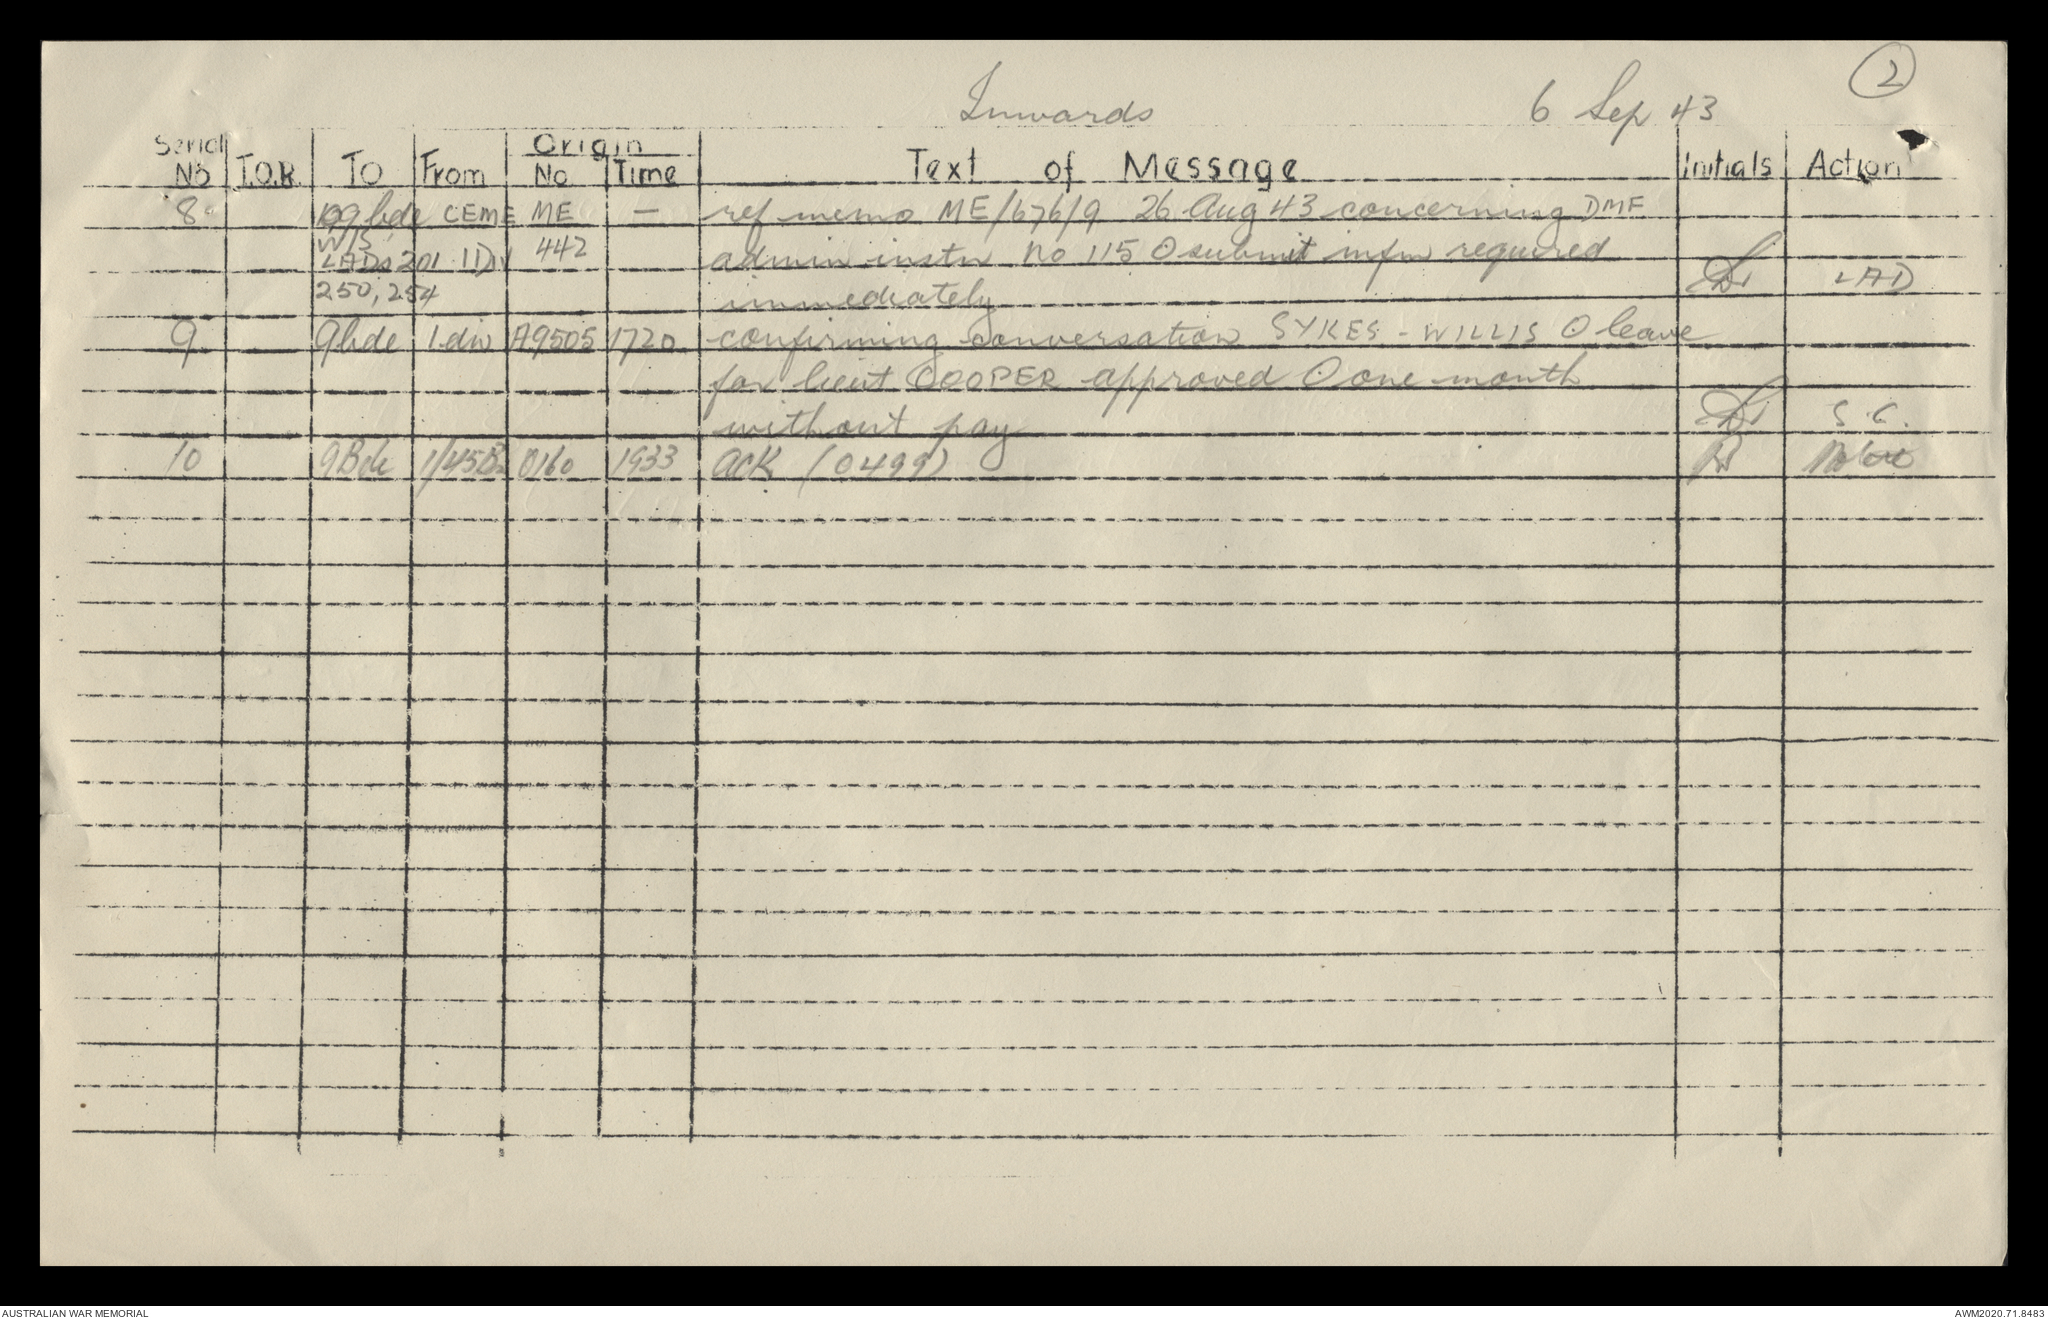 2
Inwards 6 Sep 43
Serial Origin
No T.O.R. To From No Time Text of Message Initials Action
8 9 bde CEME ME — ref memo ME/676/9 26 Aug 43 concerning DME
W/S
LADs 201 1 Div 442 admin instn No 115 O submit infm required
250, 254 immediately LAD
9 9 bde 1 div A9505 1720 confirming conversation SYKES - WILLIS O leave
for lieut COOPER approved O one month
without pay S.C.
10 9 Bde 1/45 Bn 0160 1933 ack (0499)
AUSTRALIAN WAR MEMORIAL AWM2020.71.8483